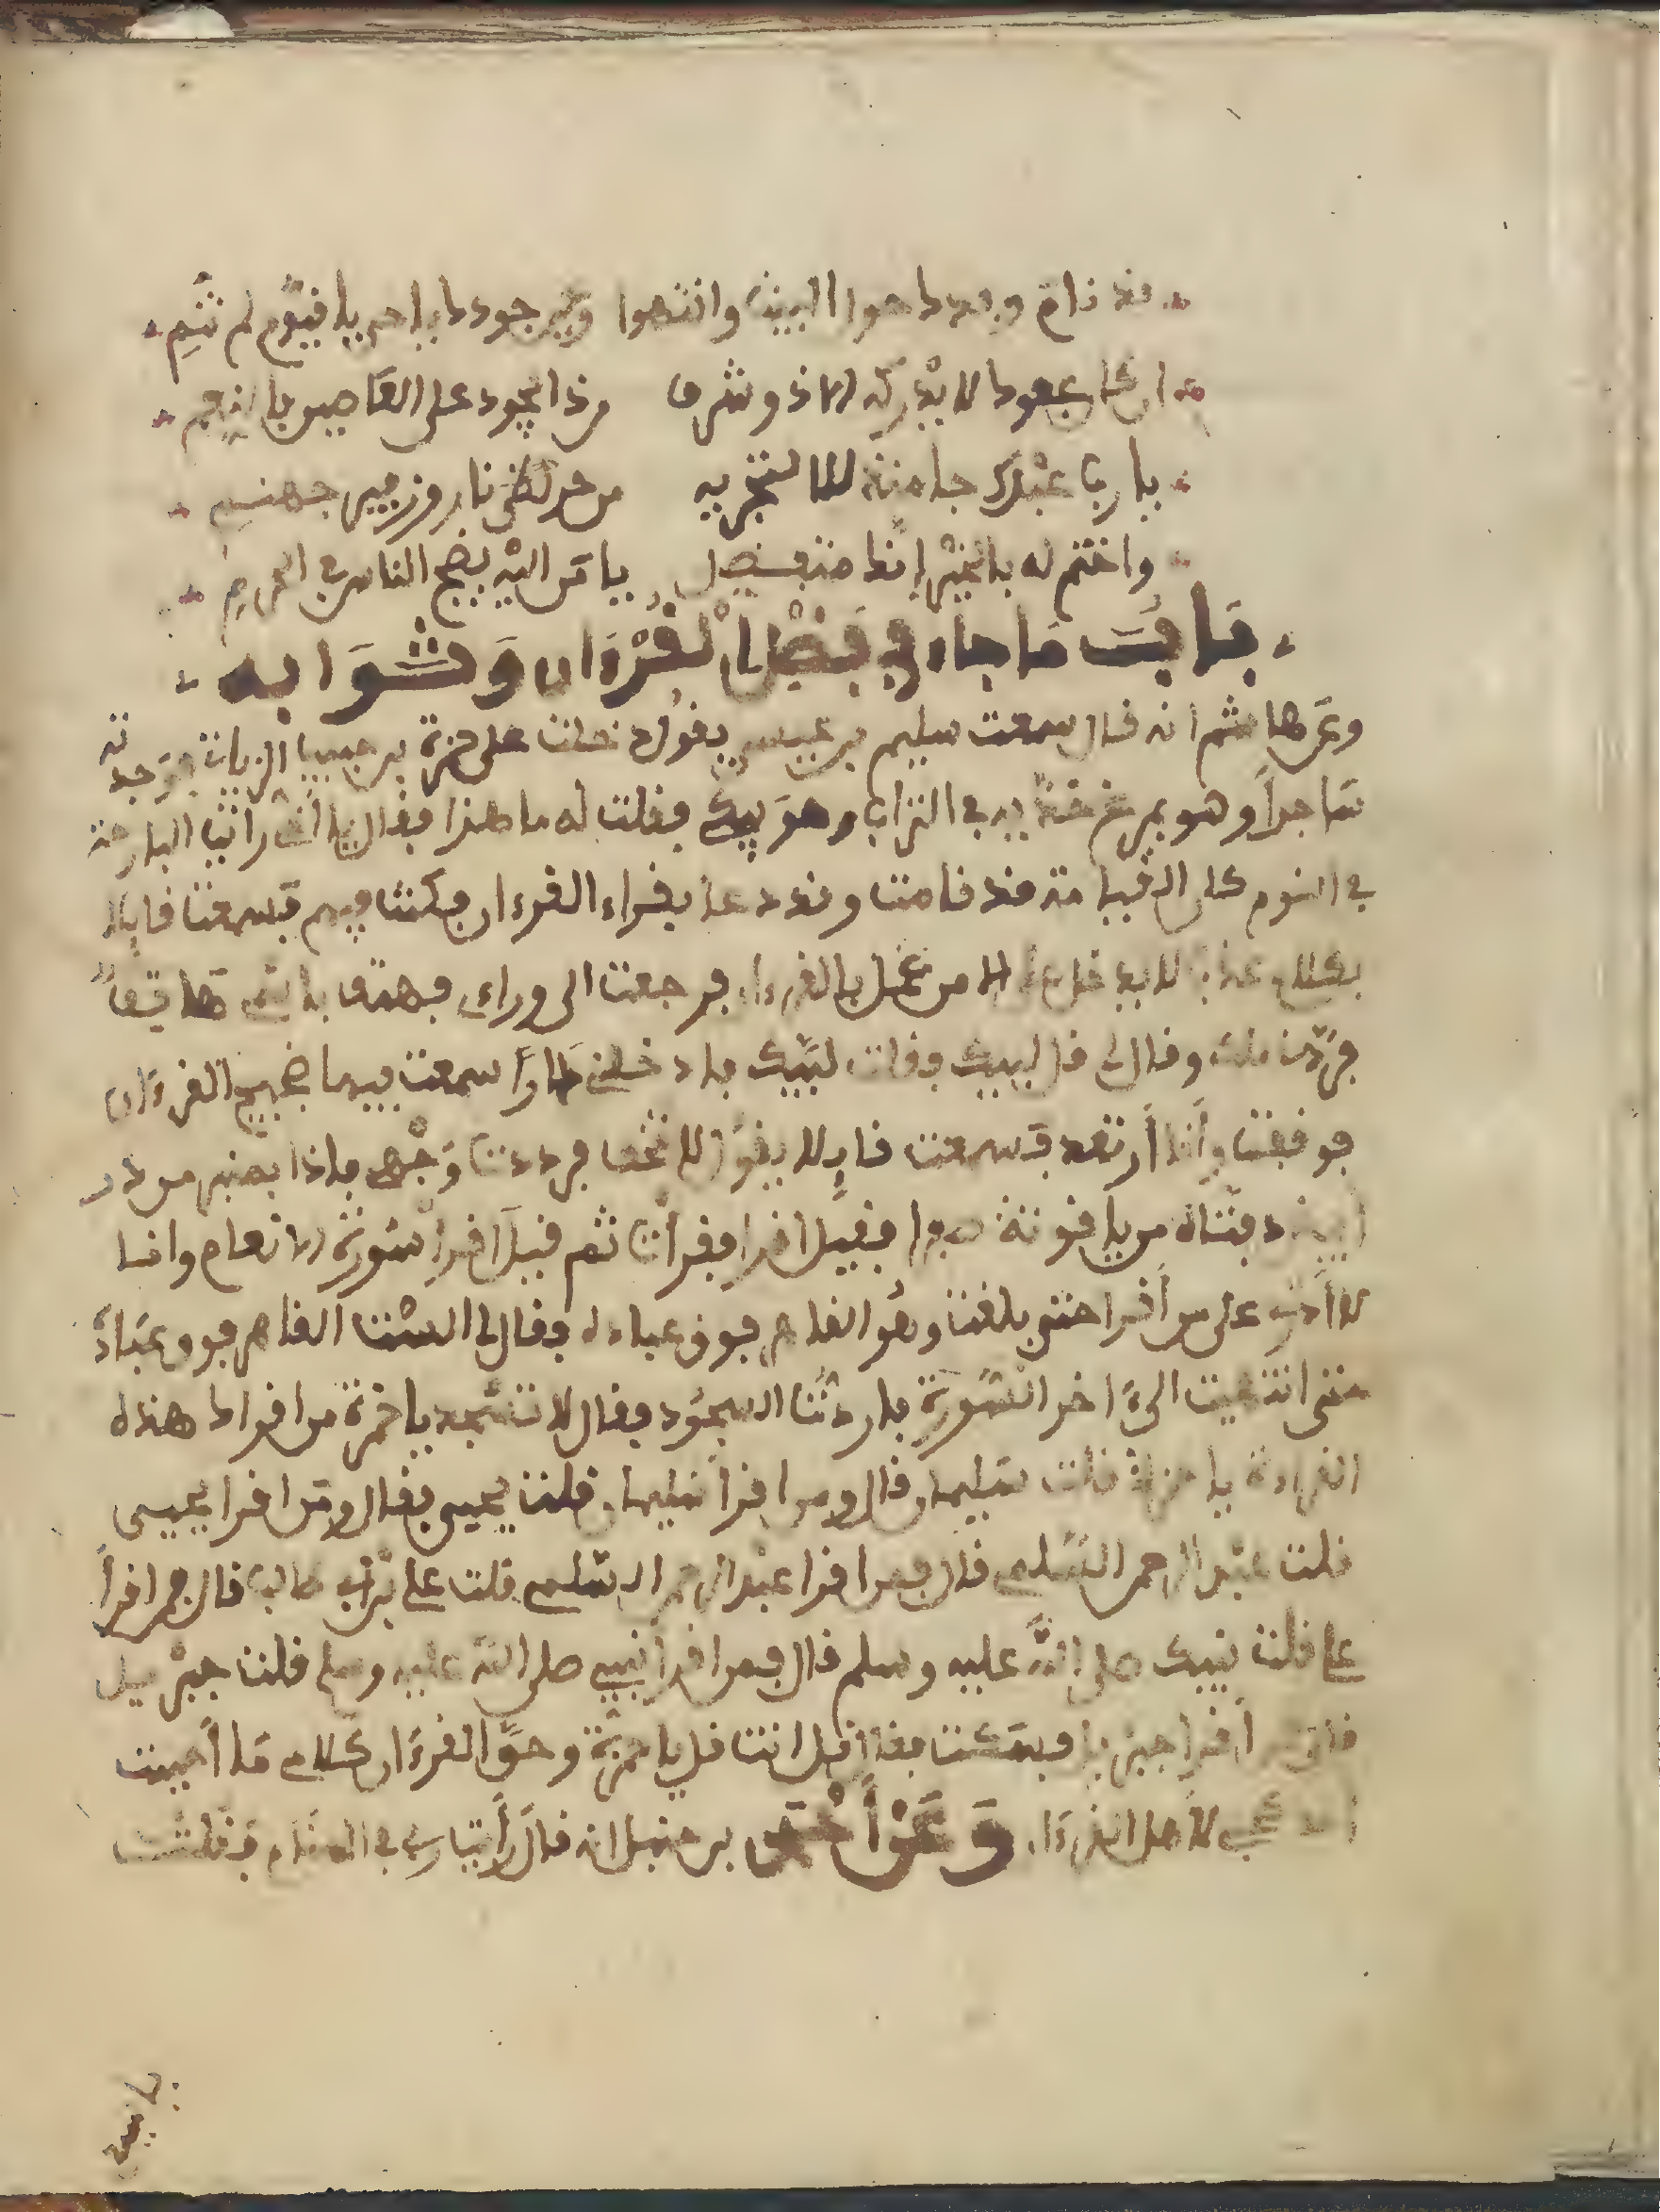 قد نام وفدك حول البيت وانتبهوا وعين جودك يا حي يا قيوم لم تنم
ان كان عفوك لا يدركه الا ذو شرف من ذا يجود على العاصين بالنعم
يا رب عبدك جا منك لما لتجريه من حر لظى نار وزمهرير جهنم
واختم له بالخير إنك متفضل يا من اليه يضج الناس في الحرم
بَابُ مَا جاء في فَضْل الْقُرْءَان وَثَوَابه
وعن هاشم انه قال سمعت سليم بن عيسى يقول دخلت على حمزة بن حبيب الزيات فوجدته
ساجداً وهو يمرغ خديه في التراب وهو يبكي فقلت له ما هذا فقال رايت البارحة
في النوم كان القيامة قد قامت وقد دعا بقراء القرءان فكنت فيهم فسمعت قايلا
بكلام عذب لا يدخل على الا من عمل بالقرءان فرجعت الى وراي فهتف باسمي هاتفاً
وقال لي قل لبيك فقلت لبيك فادخلني داراً سمعت فيها ضجيج القرءان
فوقفت وأنا أرتعد فسمعت قايلا يقول لا تخف فرددت وَجْهي فاذا بمنبر من در
ابيض دفتاه من ياقوتة فقيل اقرا فقرأت ثم قيل اقرأ سورة الانعام وانا
لا أدري على من أقرا حتى بلغت وهُو القاهر فوق عباده فقال لي الست القاهر فوق عبادي
حتى انتهيت الى ءاخر السُّورة فاردتُ السجُود فقال لا تسجد يا حمزة من اقراك هذه
القراءة يا حمزة قلت سليمان قال ومن اقرأ سليمان قلت يحيى فقال ومن اقرا يحيى
قلت عبد الرحمن السلمي قال فمن اقرا عبد الرحمن السلمي قلت علي بن ابي طالب قال فمن اقرأ
عليا قلت نبيك صلى الله عليه وسلم قال فمن اقرأ نبيي صلى الله عليه وسلم قلت جبريل
قال من أقرا جبريل فسكت فقال قل انت قل يا حمزة وحق القرءان كلامي ما أحببت
لأهل القرءان وَعَنْ أَحْمَد بن حنبل انه قال رأيت ربي في المنام فقلت